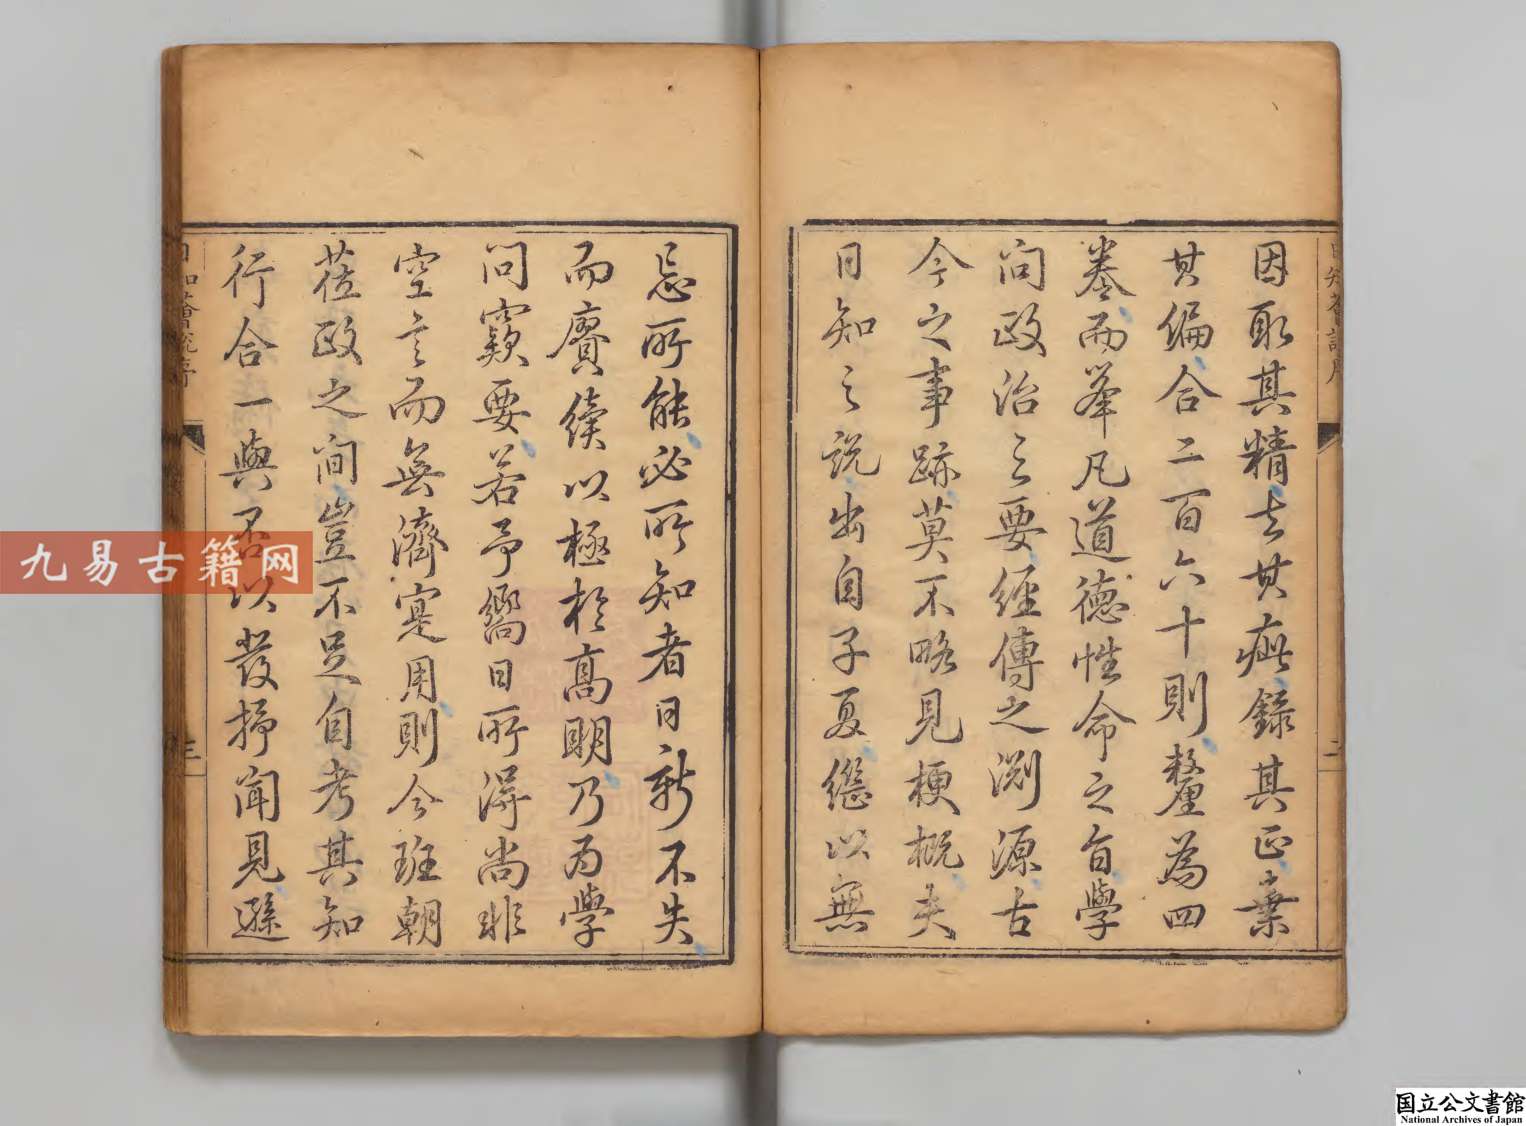 因取其精去其疵錄其正棄
其偏合二百六十則釐為四
卷而峯凡道德性命之旨學
问政治之要經傳之渊源古
今之事跡莫不略見梗概夫
日知之說出自子夏繼以無
忘所能必所知者日新不失
而賡續以極於高明乃为學
问窾要若予嚮日所得尚非
空言而無濟寔用則今班朝
莅政之间豈不足自考其知
行合一與否以發抒闻見遜
日知薈說序
二
日知薈說序
三
九易古籍网
国立公文書館
National Archives of Japan